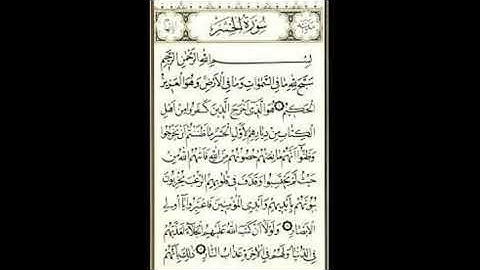 سورة الحشر
بسم الله الرحمن الرحيم
سبح لله ما في السموات وما في الأرض وهو العزيز
الحكيم هو الذي أخرج الذين كفروا من أهل
الكتاب من ديارهم لأول الحشر ما ظننتم أن يخرجوا
وظنوا أنهم مانعتهم حصونهم من الله فأتاهم الله من
حيث لم يحتسبوا وقذف في قلوبهم الرعب يخربون
بيوتهم بأيديهم وأيدي المؤمنين فاعتبروا يا أولي
الأبصار ولولا أن كتب الله عليهم الجلاء لعذبهم
في الدنيا ولهم في الآخرة عذاب النار ذلك بأنهم